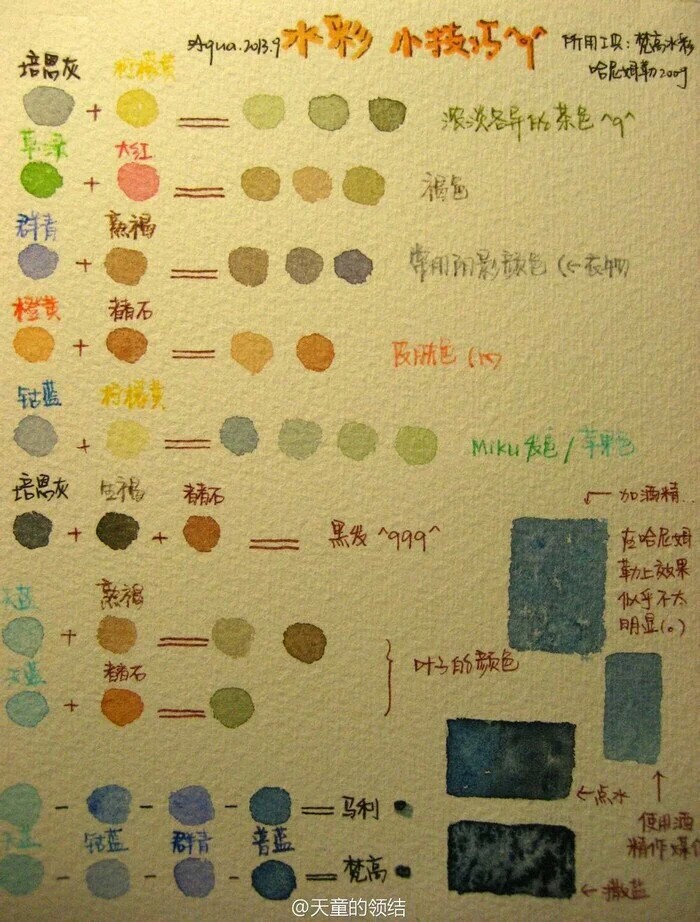 Aqua.2013.9 水彩 小技巧^q^
所用工具:梵高水彩
哈尼姆勒200g
培恩灰 柠檬黄
+ =
浓淡各异的茶色^q^
草绿 大红
+ =
褐色
群青 熟褐
+ =
常用阴影颜色(←衣物)
橙黄 赭石
+ =
皮肤色
钴蓝 柠檬黄
+ =
Miku发色/苹果色
培恩灰 生褐 赭石
+ + =
黑发^999^
←加酒精..
在哈尼姆
勒上效果
似乎不太
明显(。)
天蓝 熟褐
+ =
天蓝 赭石
+ =
叶子的颜色
←点水
使用酒
精作媒介
- - - = 马利
天蓝 钴蓝 群青 普蓝
- - - = 梵高
←撒盐
@天童的领结